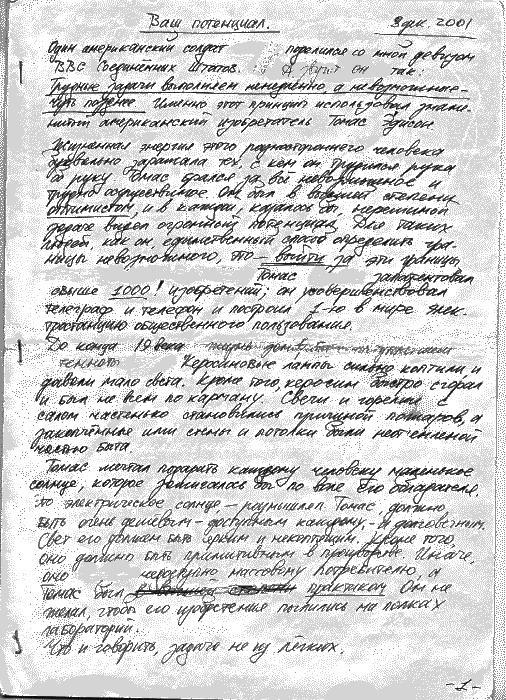 Ваш потенциал. 8 дек. 2001
Один американский солдат поделился со мной девизом
ВВС Соединённых Штатов. А звучит он так:
Трудные задачи выполняем немедленно, а невозможные –
чуть позднее. Именно этот принцип использовал знаме-
нитый американский изобретатель Томас Эдисон.
Жизненная энергия этого разностороннего человека
буквально заражала тех, с кем он трудился рука
об руку. Томас брался за всё невозможное и
трудно осуществимое. Он был в высшей степени
оптимистом, и в каждой, казалось бы, нерешимой
задаче видел огромный потенциал. Для таких
людей, как он, единственный способ определить гра-
ницы невозможного, это – выйти за эти границы.
Томас запатентовал
свыше 1000! изобретений; он усовершенствовал
телеграф и телефон и построил 1-ю в мире элек-
тростанцию общественного пользования.
До конца 19 века
темнота Керосиновые лампы сильно коптили и
давали мало света. Кроме того, керосин быстро сгорал
и был не всем по карману. Свечи и горелки с
салом частенько становились причиной пожаров, а
закопчённые или стены и потолки были неотъемлемой
частью быта.
Томас мечтал подарить каждому человеку маленькое
солнце, которое зажигалось бы по воле его обладателя
Это электрическое солнце, – размышлял Томас, должно
быть очень дешёвым – доступным каждому, – и долговечным.
Свет его должен быть ярким и некоптящим. Кроме того,
оно должно быть примитивным в производстве. Иначе,
оно массовому потребителю, а
Томас был практиком. Он не
желал, чтобы его изобретения пылились на полках
лабораторий.
Что и говорить, задача не из лёгких.
-1-